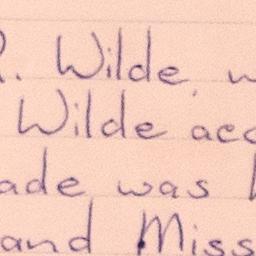 R. Wilde, w
Wilde acc
ade was
and Miss